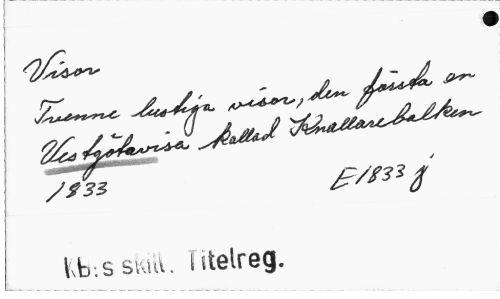 Visor
Tvenne lustiga visor, den första en
Vestgötavisa kallad Knallarebalken
1833 E1833 j
KB:s skill. Titelreg.